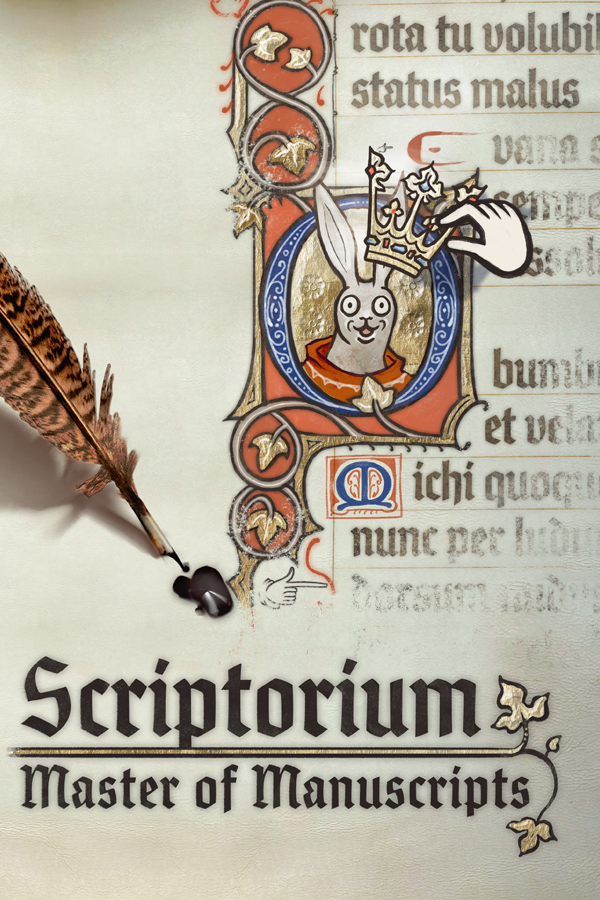 rota tu volubil
status malus
vana s
sempe
et vela
Michi quoque
nunc per ludu
dorsum
Scriptorium
Master of Manuscripts